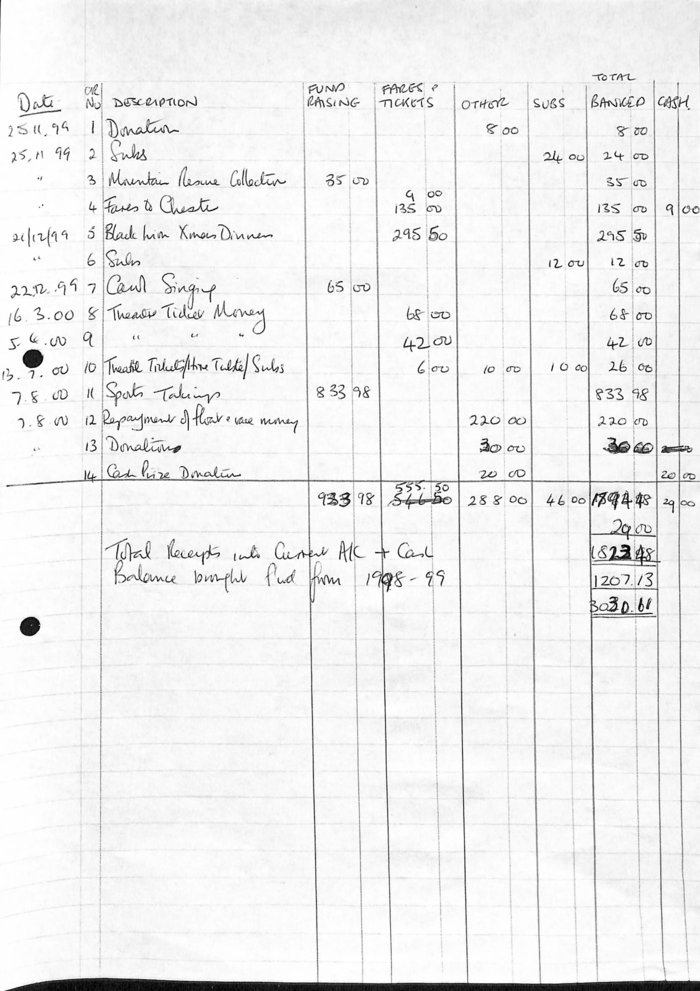 TOTAL
Date OR NO DESCRIPTION FUND RAISING FARES & TICKETS OTHER SUBS BANKED CASH
25 11.99 1 Donation 8 00 8 00
25.11 99 2 Subs 24 00 24 00
" 3 Mountain Rescue Collection 35 00 35 00
9 00
" 4 Fares to Chester 135 00 135 00 9 00
21/12/99 5 Black Lion Xmas Dinners 295 50 295 50
" 6 Subs 12 00 12 00
22.12.99 7 Carol Singing 65 00 65 00
16.3.00 8 Theatre Ticket Money 68 00 68 00
5 4.00 9 " " " 42 00 42 00
13.7.00 10 Theatre Tickets/Hire Table/Subs 6 00 10 00 10 00 26 00
7.8.00 11 Sports Takings 833 98 833 98
7.8.00 12 Repayment of float & race money 220 00 220 00
" 13 Donations 30 00 30 00
14 Cash Prize Donation 20 00 20 00
555.50
933 98 546 50 288 00 46 00 48 29 00
29 00
Total Receipts into Current A/C + Cash 1823 48
Balance brought fwd from 1998-99 1207.13
3030.61